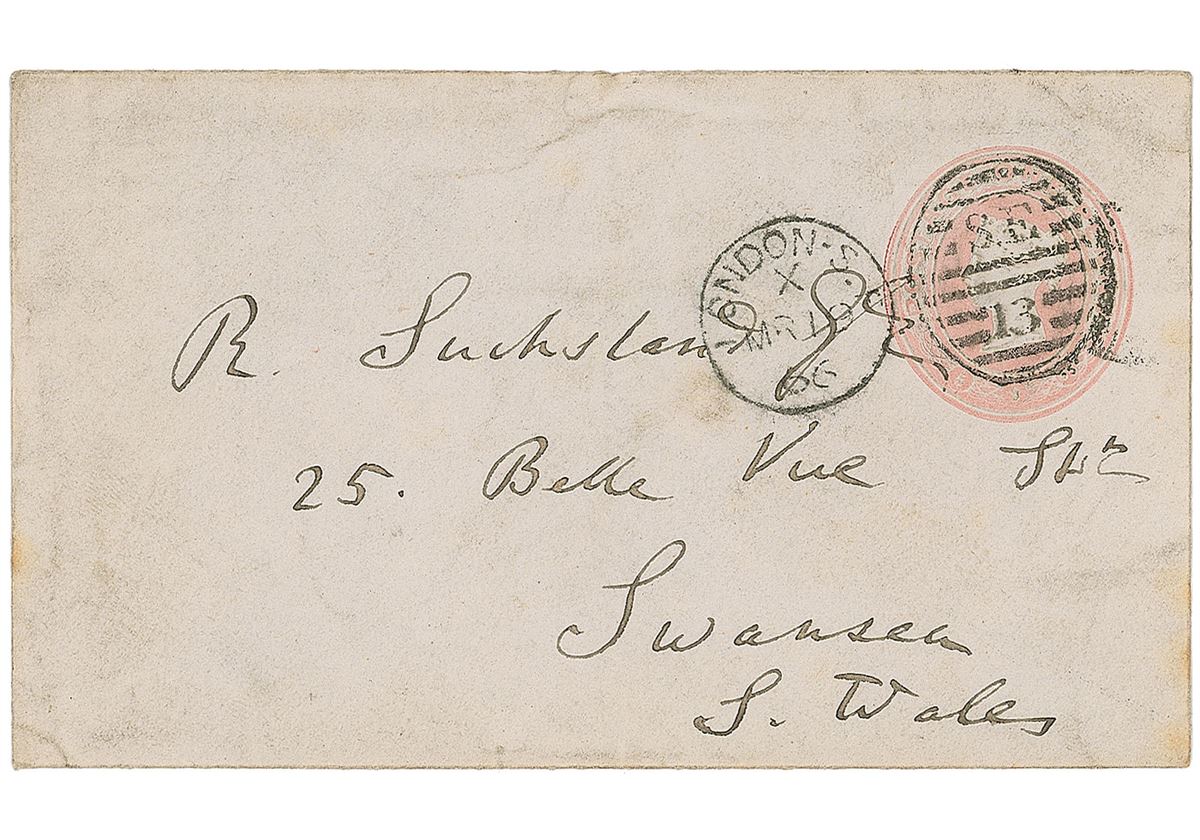 LONDON-S.E
X
MR 10
66
S.E.
13
R. Suchsland
25. Belle Vue Str
Swansea
S. Wales